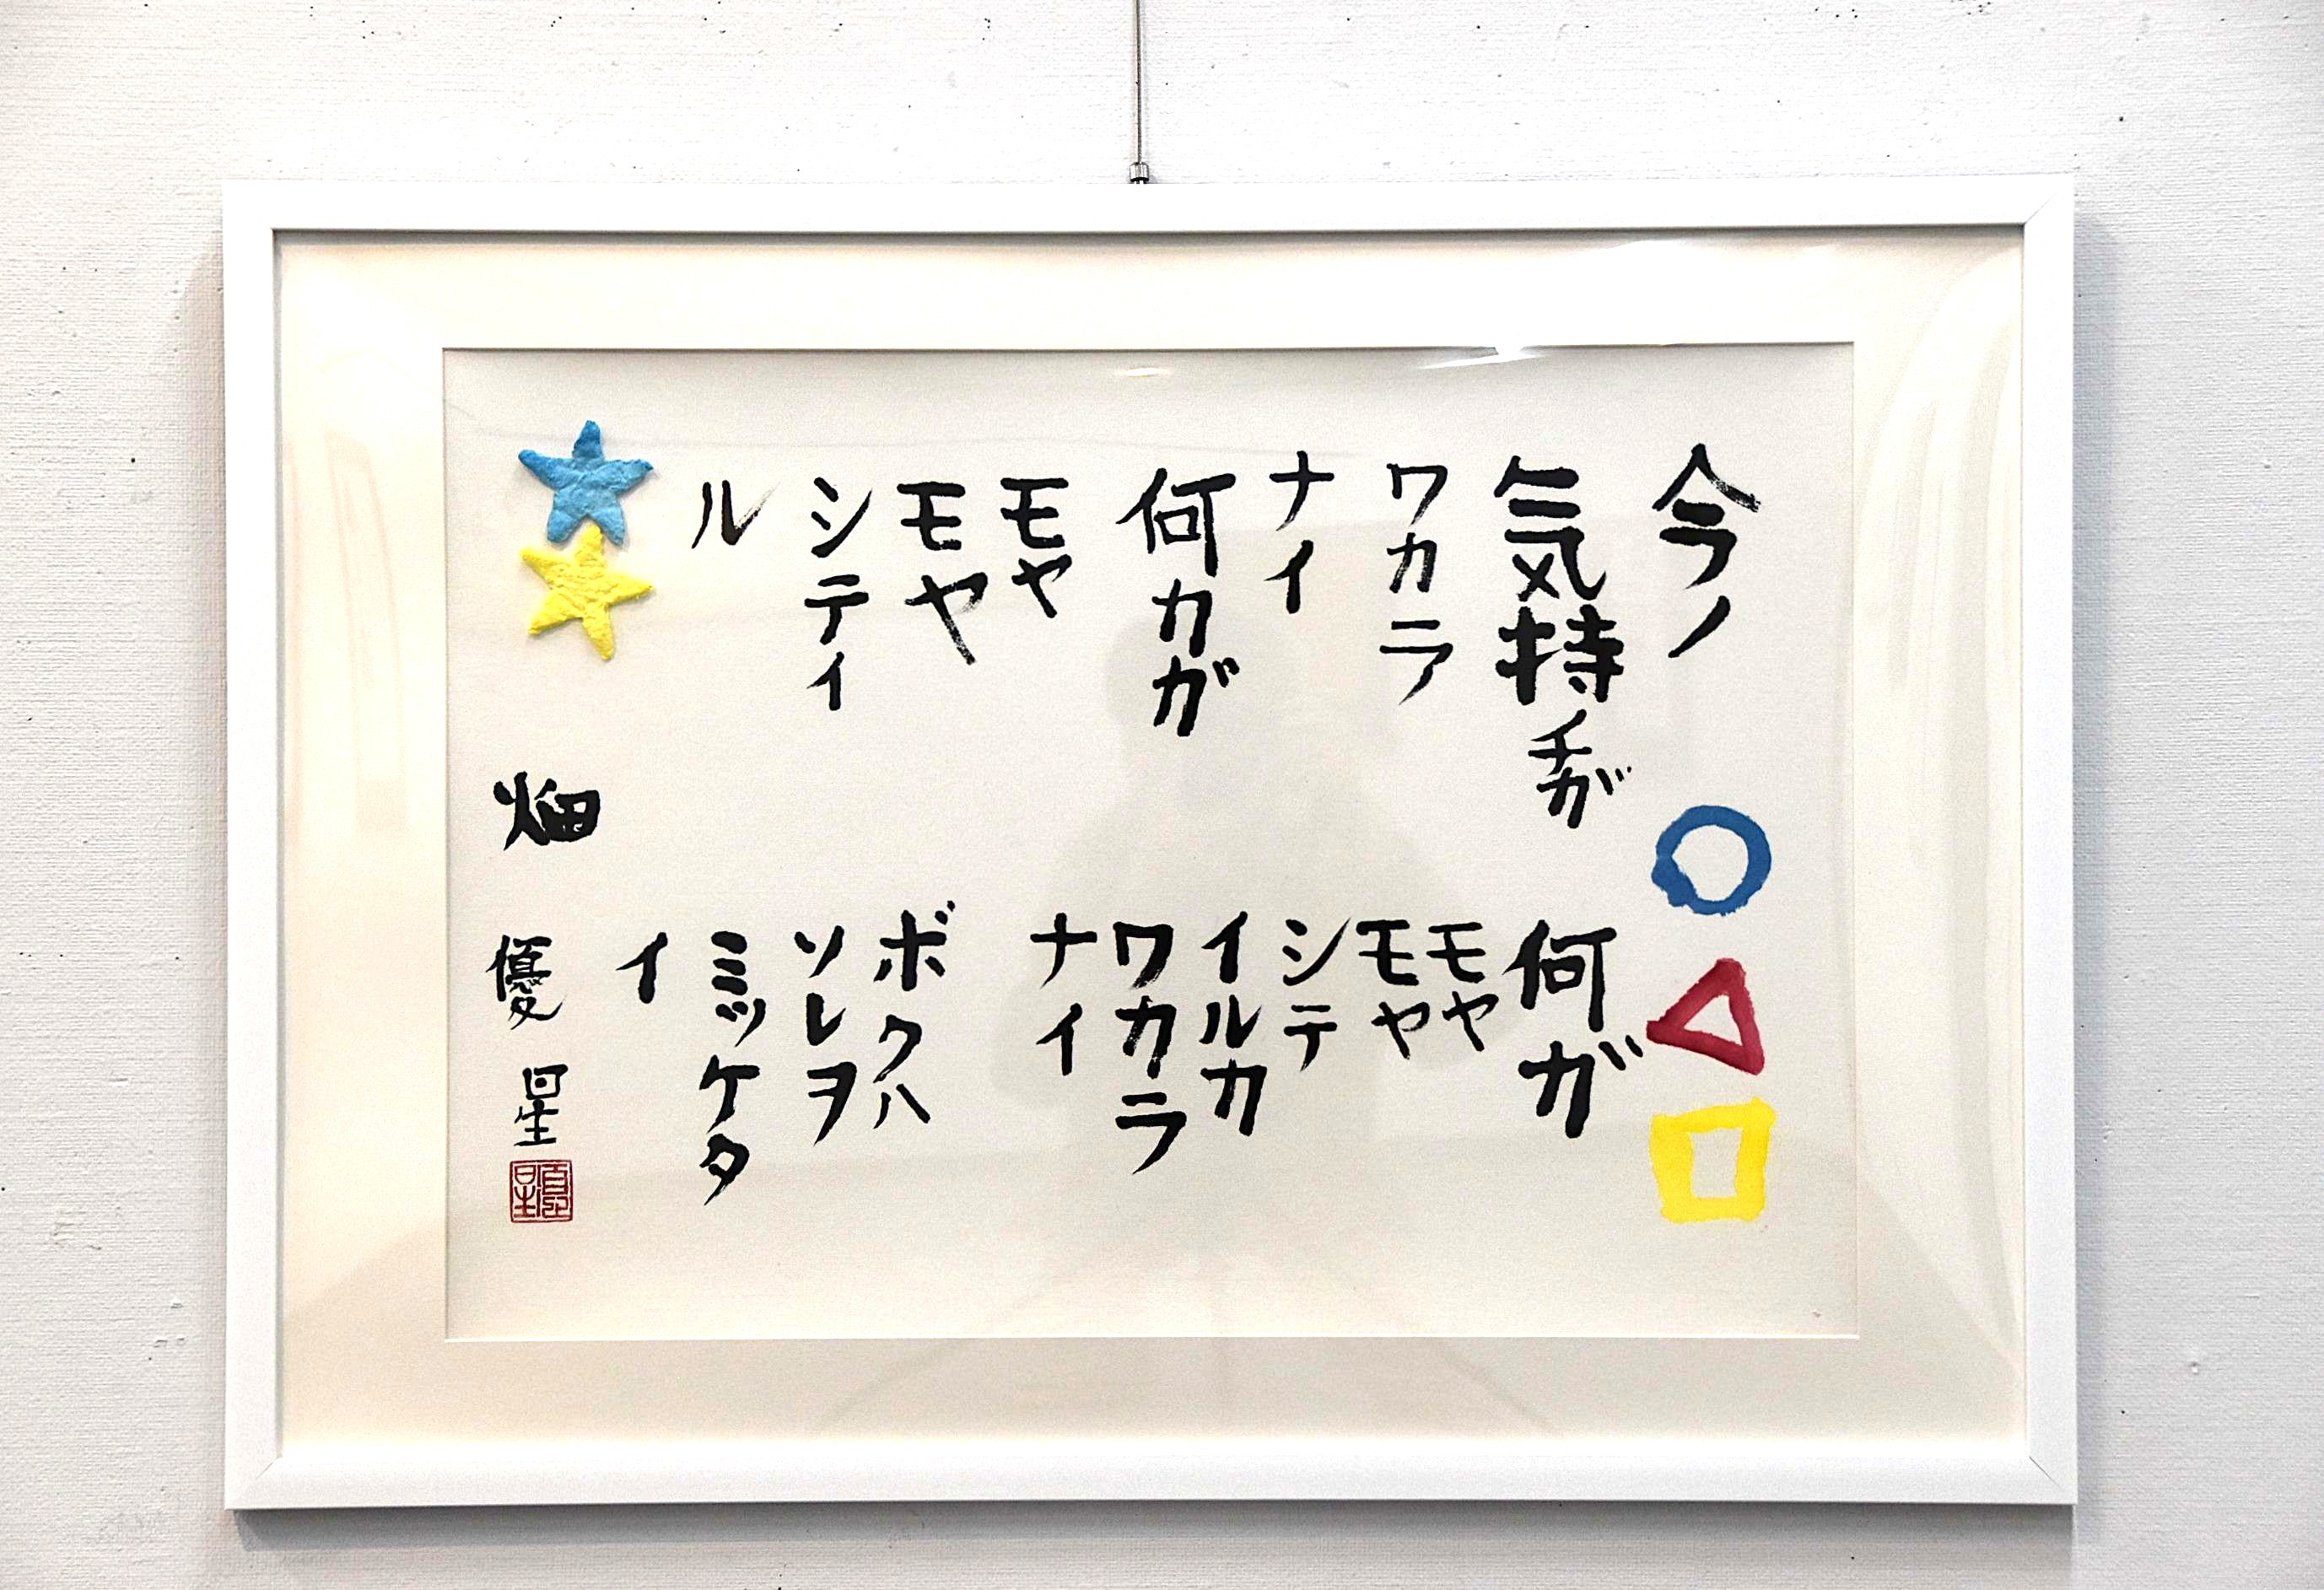 今ノ
気持チガ
ワカラ
ナイ
何カガ
モヤ
モヤ
シテイ
ル
何ガ
モヤ
モヤ
シテ
イルカ
ワカラ
ナイ
ボクハ
ソレヲ
ミツケタ
イ
畑 優星
優星